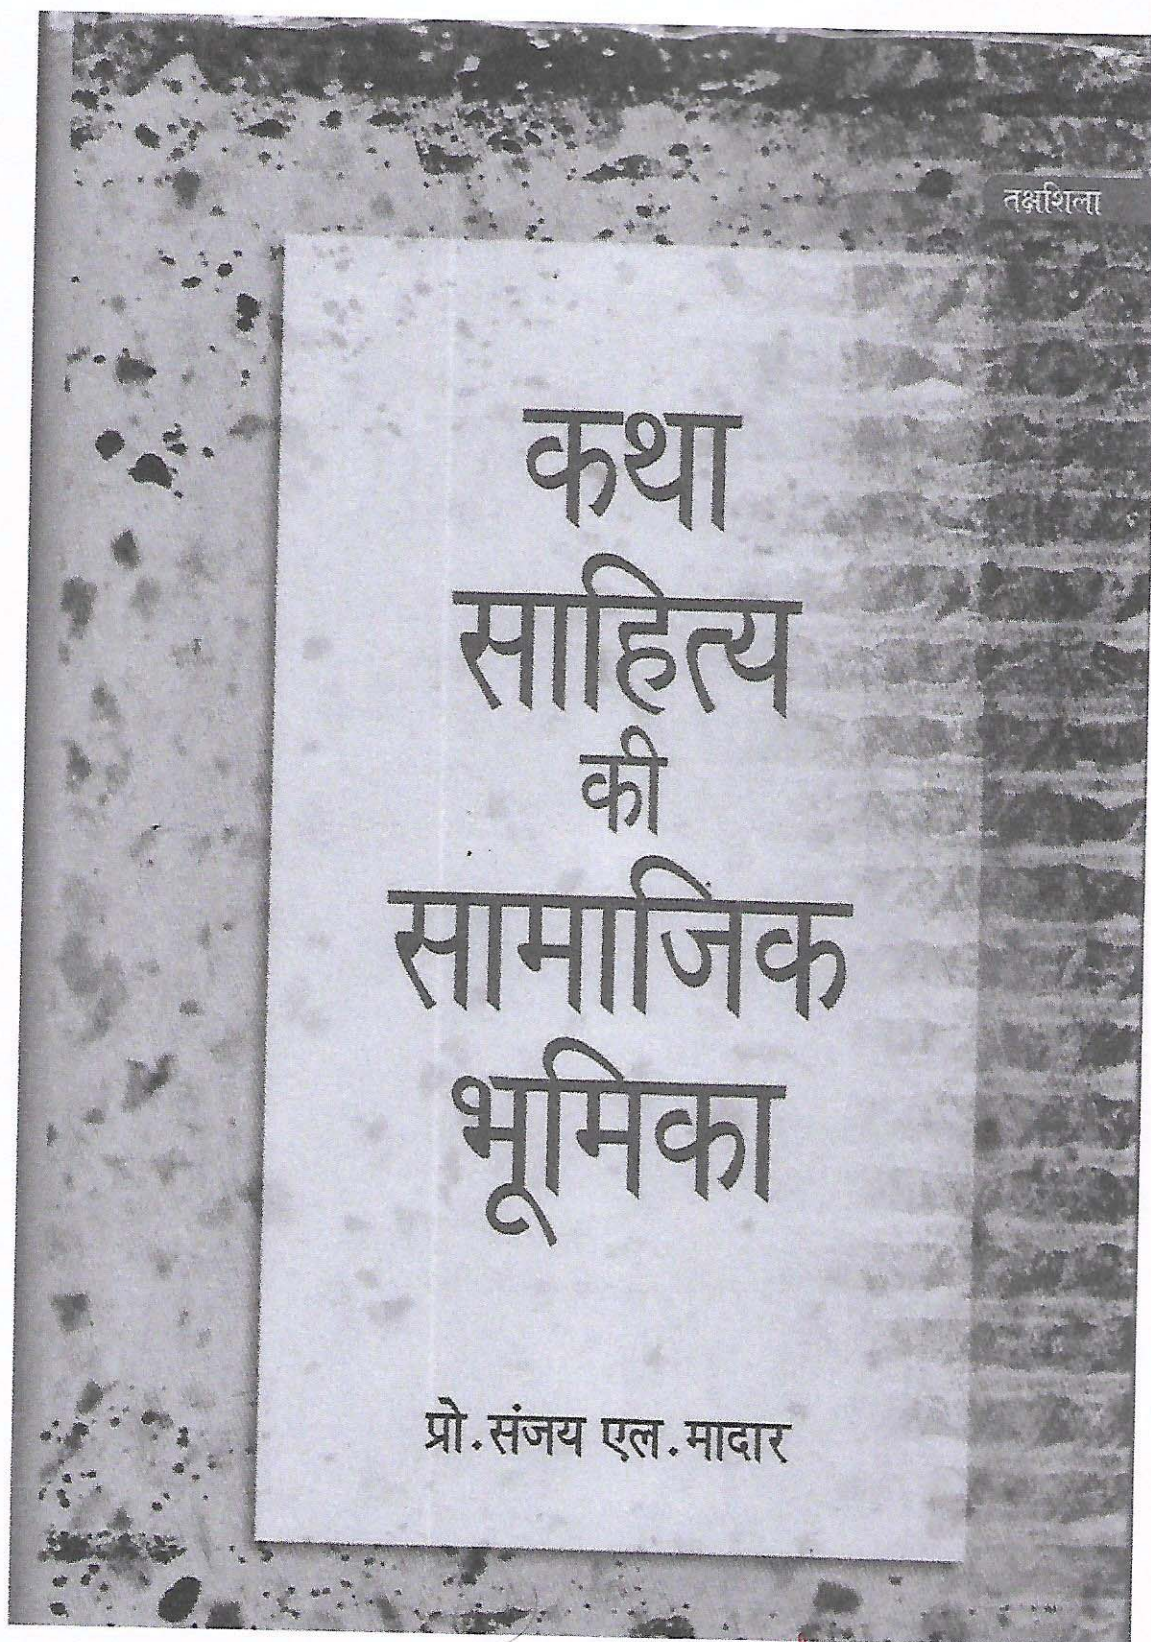 तक्षशिला
कथा
साहित्य
की
सामाजिक
भूमिका
प्रो.संजय एल.मादार